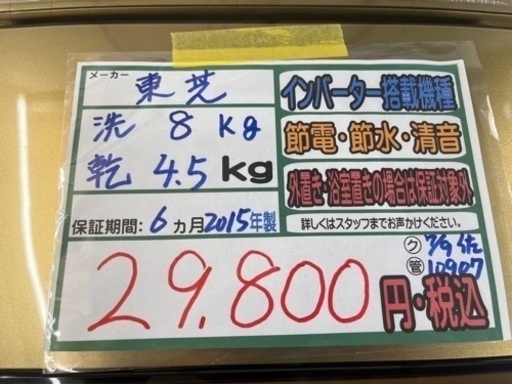 メーカー 東芝
洗 8 kg
乾 4.5 kg
保証期間: 6 カ月 2015年製
インバーター搭載機種
節電・節水・清音
外置き・浴室置きの場合は保証対象外
詳しくはスタッフまでお声かけください。
ク
管 10907
29.800 円・税込